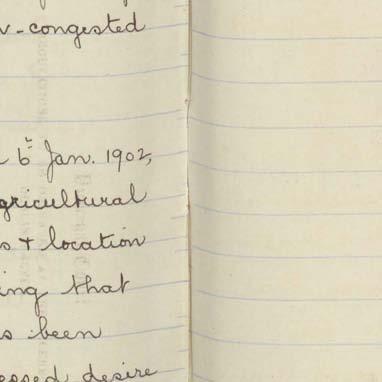 -congested
6th Jan. 1902,
agricultural
s + location
ing that
s been
essed desire